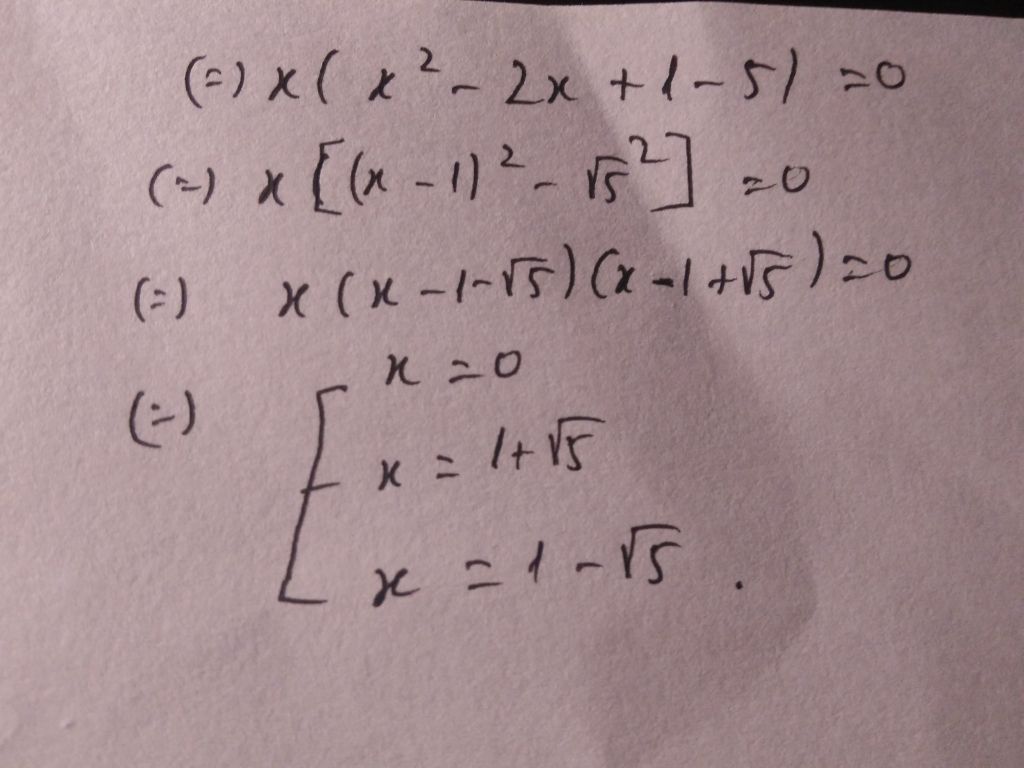 (=) x( x² - 2x + 1 - 5) = 0
(=) x [(x - 1)² - √5²] = 0
(=) x (x - 1 - √5) (x - 1 + √5) = 0
(=) [ x = 0
x = 1 + √5
x = 1 - √5 .